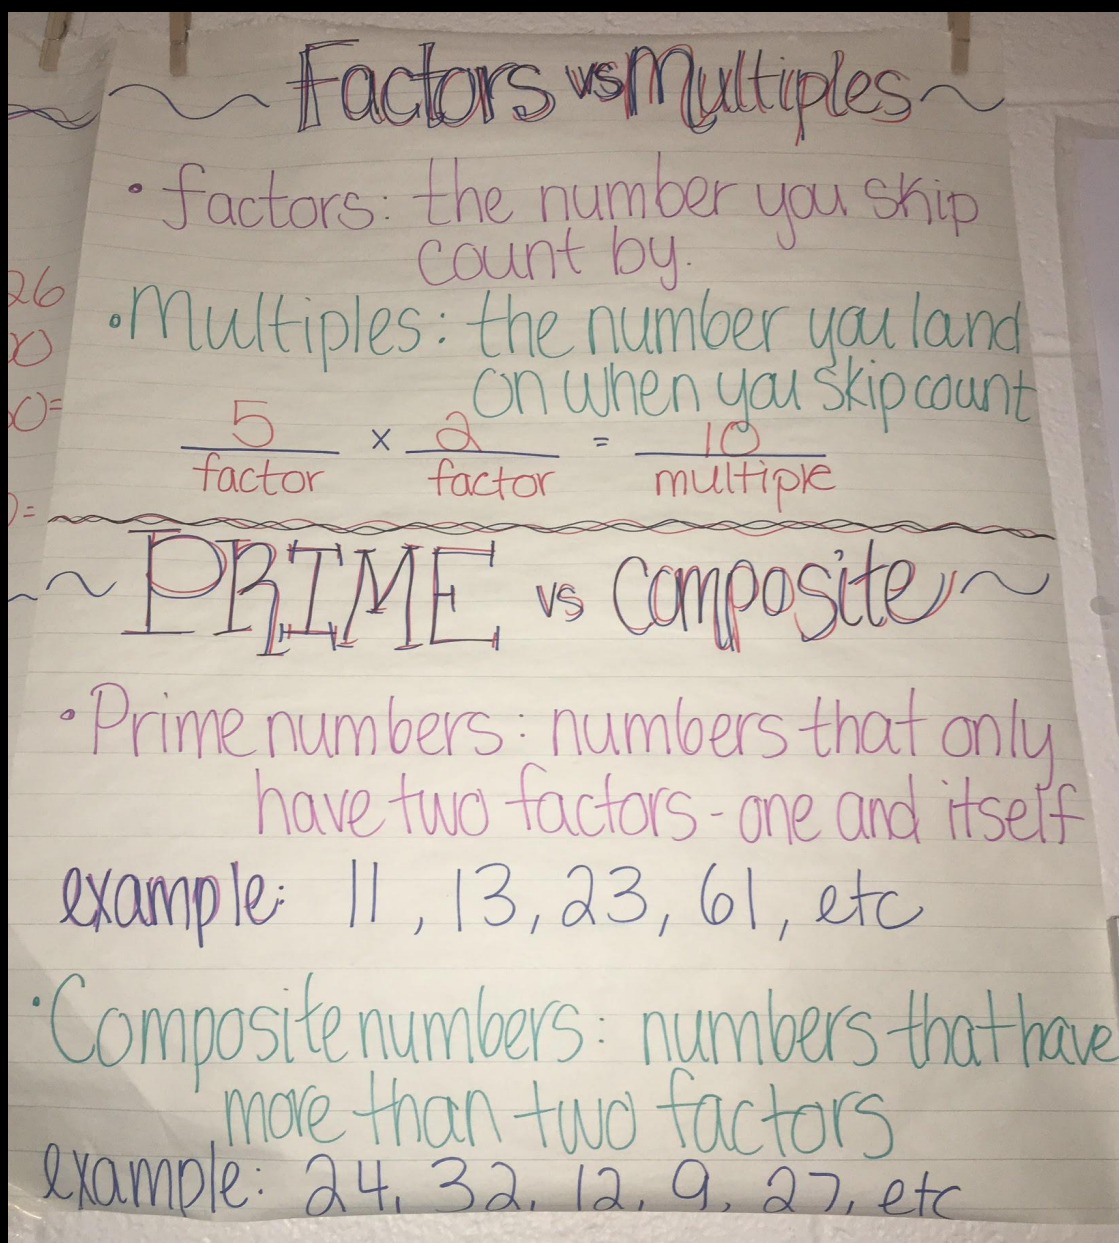 Factors vs Multiples
• factors: the number you skip
count by.
• Multiples: the number you land
on when you skip count
5 x 2 = 10
factor factor multiple
PRIME vs Composite
• Prime numbers: numbers that only
have two factors - one and itself
example: 11, 13, 23, 61, etc
• Composite numbers: numbers that have
more than two factors
example: 24, 32, 12, 9, 27, etc
26
0=